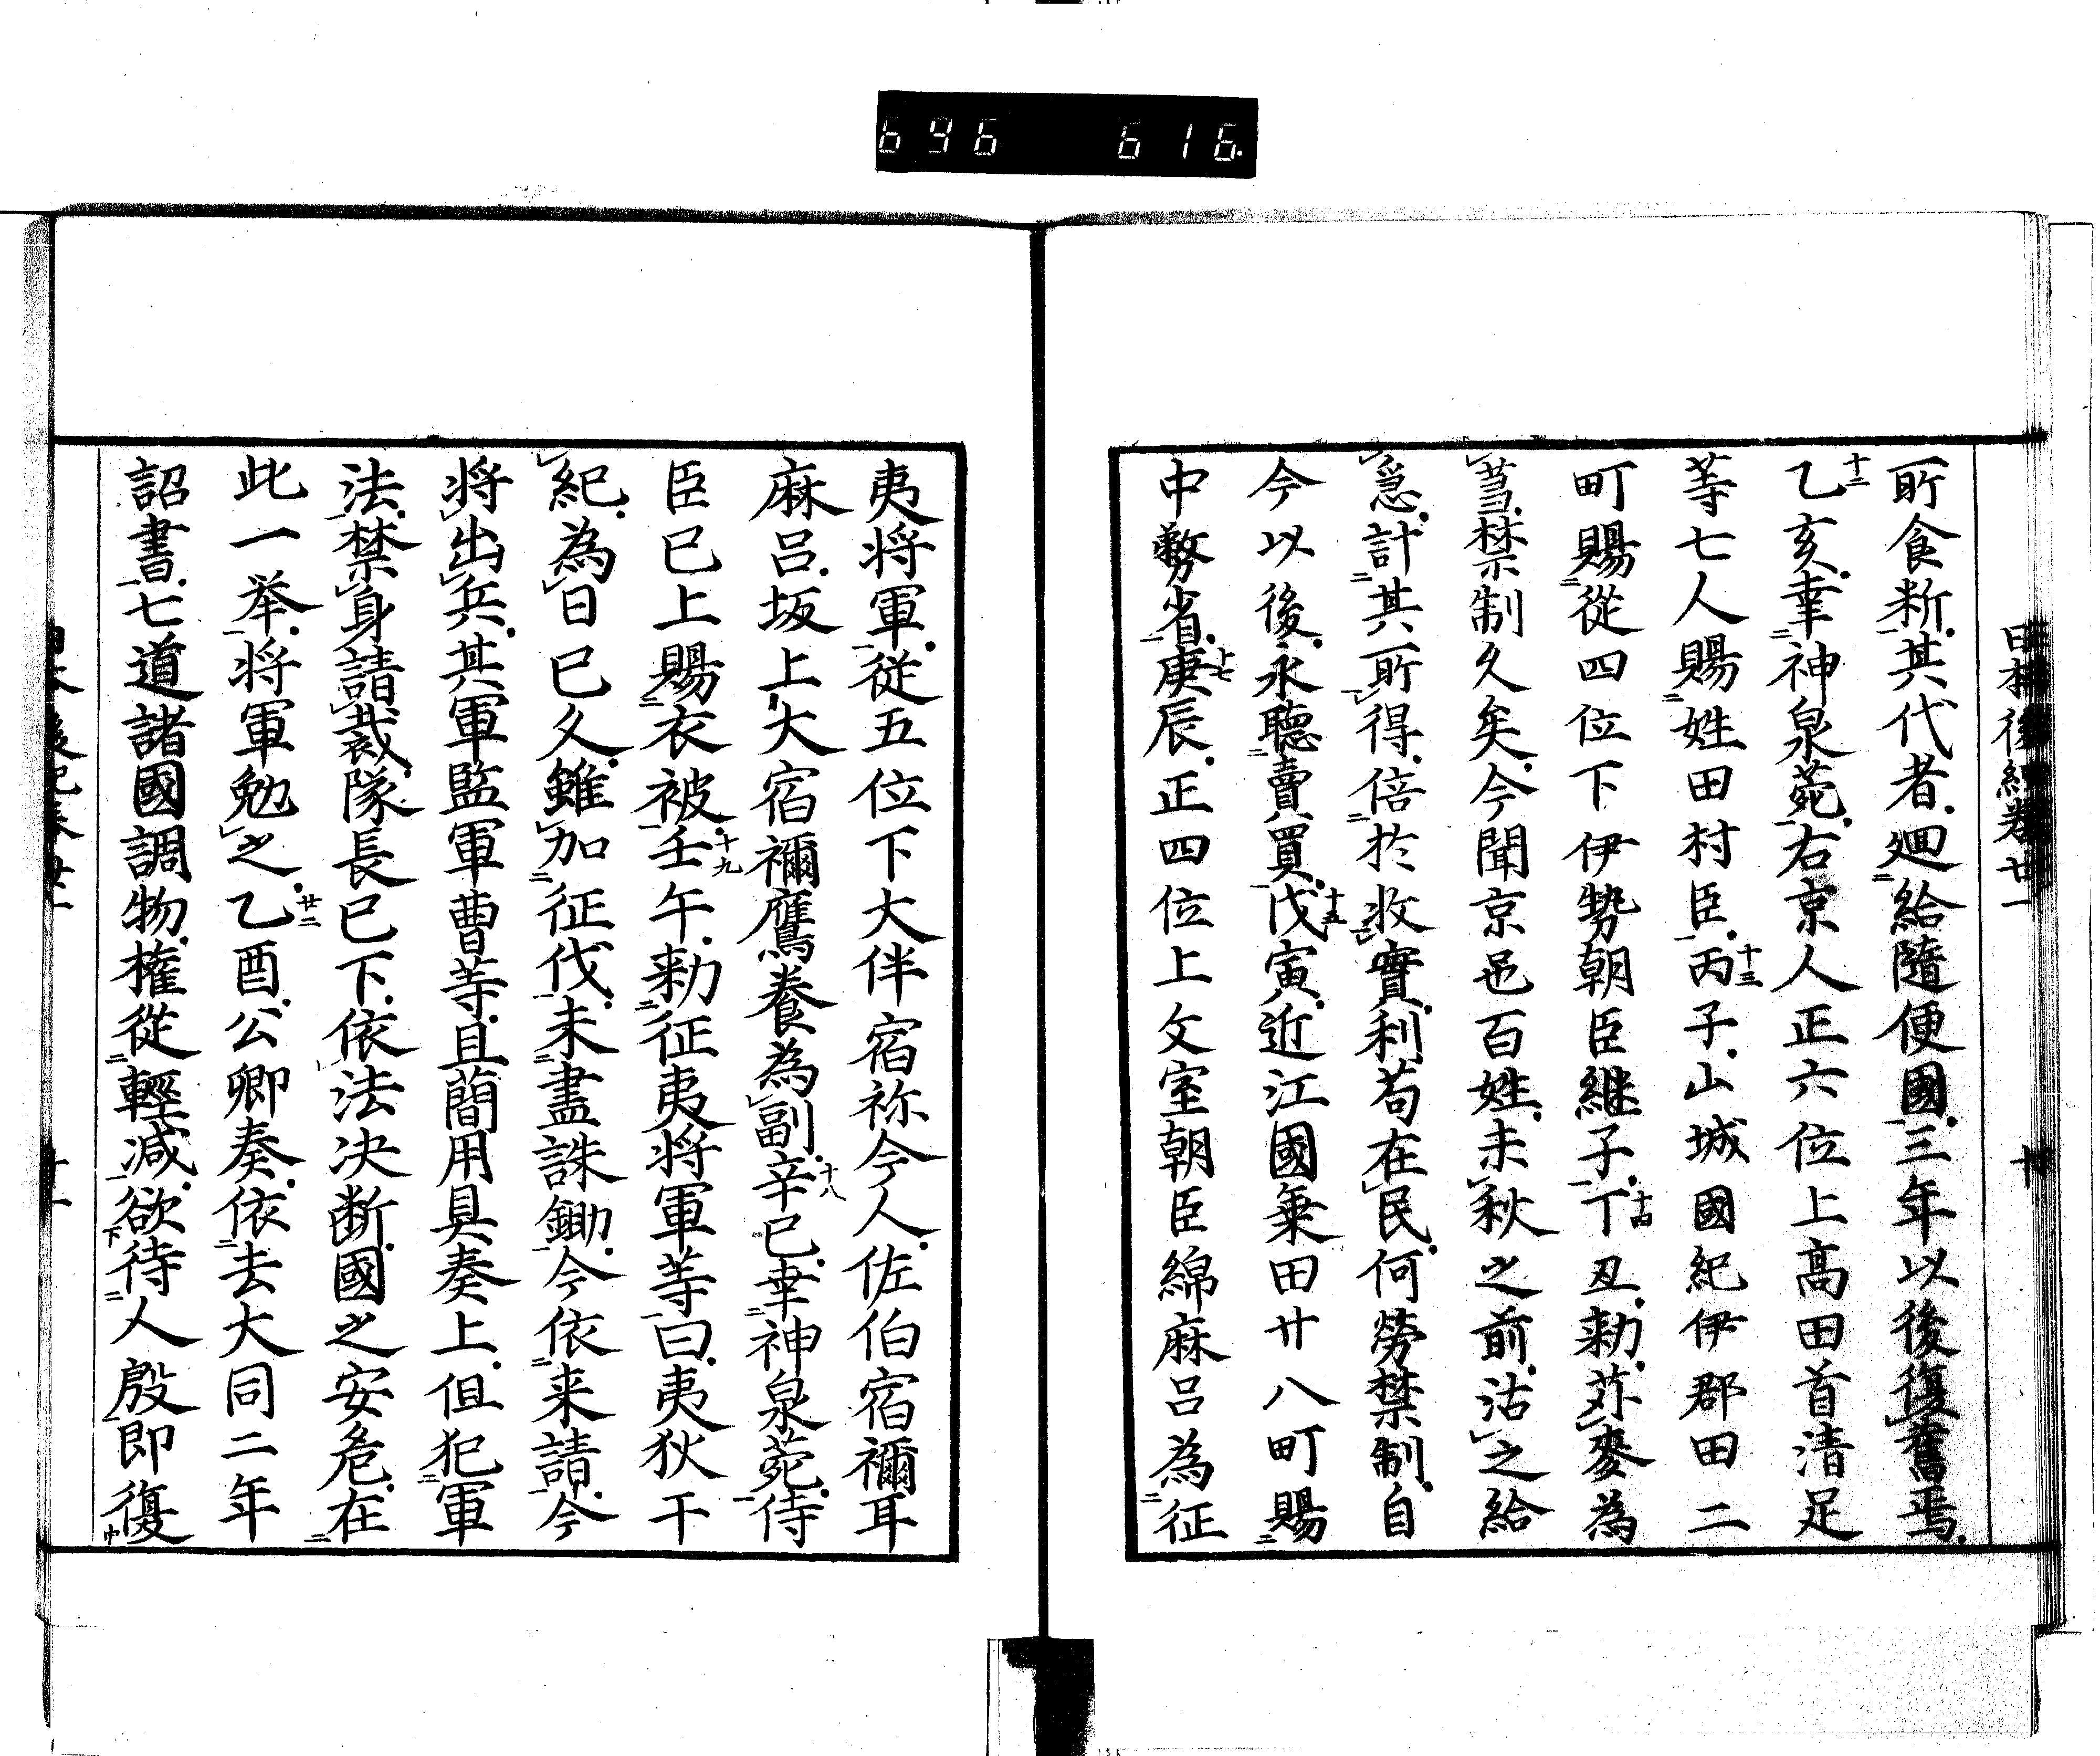 696 616
日本後紀卷廿一 十
所食料其代者廻給隨便國三年以後復舊焉
乙亥幸神泉苑右京人正六位上高田首清足
等七人賜姓田村臣丙子山城國紀伊郡田二
町賜從四位下伊勢朝臣継子丁丑勅苅麥為
蒭禁制久矣今聞京邑百姓未秋之前沽之給
急計其所得倍於收實利苟在民何勞禁制自
今以後永聽賣買戊寅近江國乗田廿八町賜
中務省庚辰正四位上文室朝臣綿麻呂為征
夷将軍從五位下大伴宿祢今人佐伯宿禰耳
麻呂坂上大宿禰鷹養為副辛巳幸神泉苑侍
臣已上賜衣被壬午勅征夷将軍等曰夷狄干
紀為日已久雖加征伐未盡誅鋤今依来請今
将出兵其軍監軍曹等且蕳用具奏上但犯軍
法禁身請裁隊長已下依法决断國之安危在
此一举将軍勉之乙酉公卿奏依去大同二年
詔書七道諸國調物權從輕減欲待人殷即復